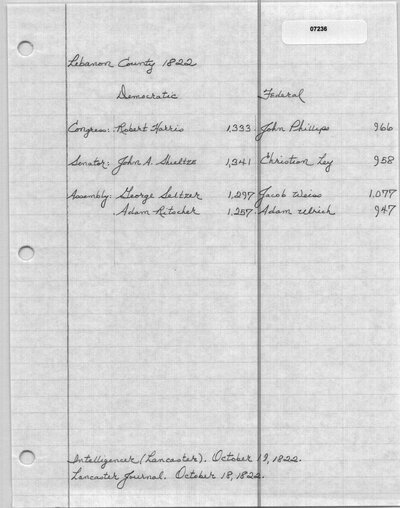 07236
Lebanon County 1822
Democratic Federal
Congress: Robert Harris 1,333 John Phillips 966
Senator: John A. Shultze 1,341 Christian Ley 958
Assembly: George Seltzer 1,297 Jacob Weiss 1,077
Adam Ritscher 1,257 Adam Ulrich 947
Intelligencer (Lancaster). October 19, 1822.
Lancaster Journal. October 18, 1822.